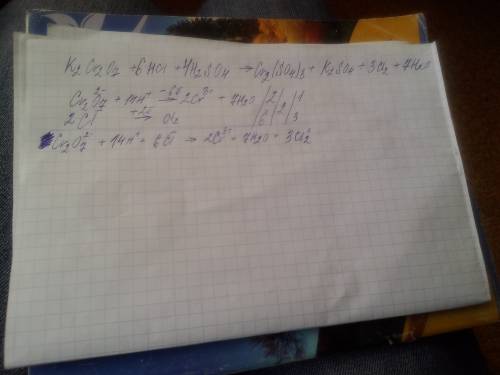 K2Cr2O7 + 6HCl + 4H2SO4 → Cr2(SO4)3 + K2SO4 + 3Cl2 + 7H2O
Cr2O7 2- + 14H+ -6e→ 2Cr3+ + 7H2O |2| |1
2Cl- +2e→ Cl2 |6|2|3
Cr2O7 2- + 14H+ + 6Cl- → 2Cr3+ + 7H2O + 3Cl2